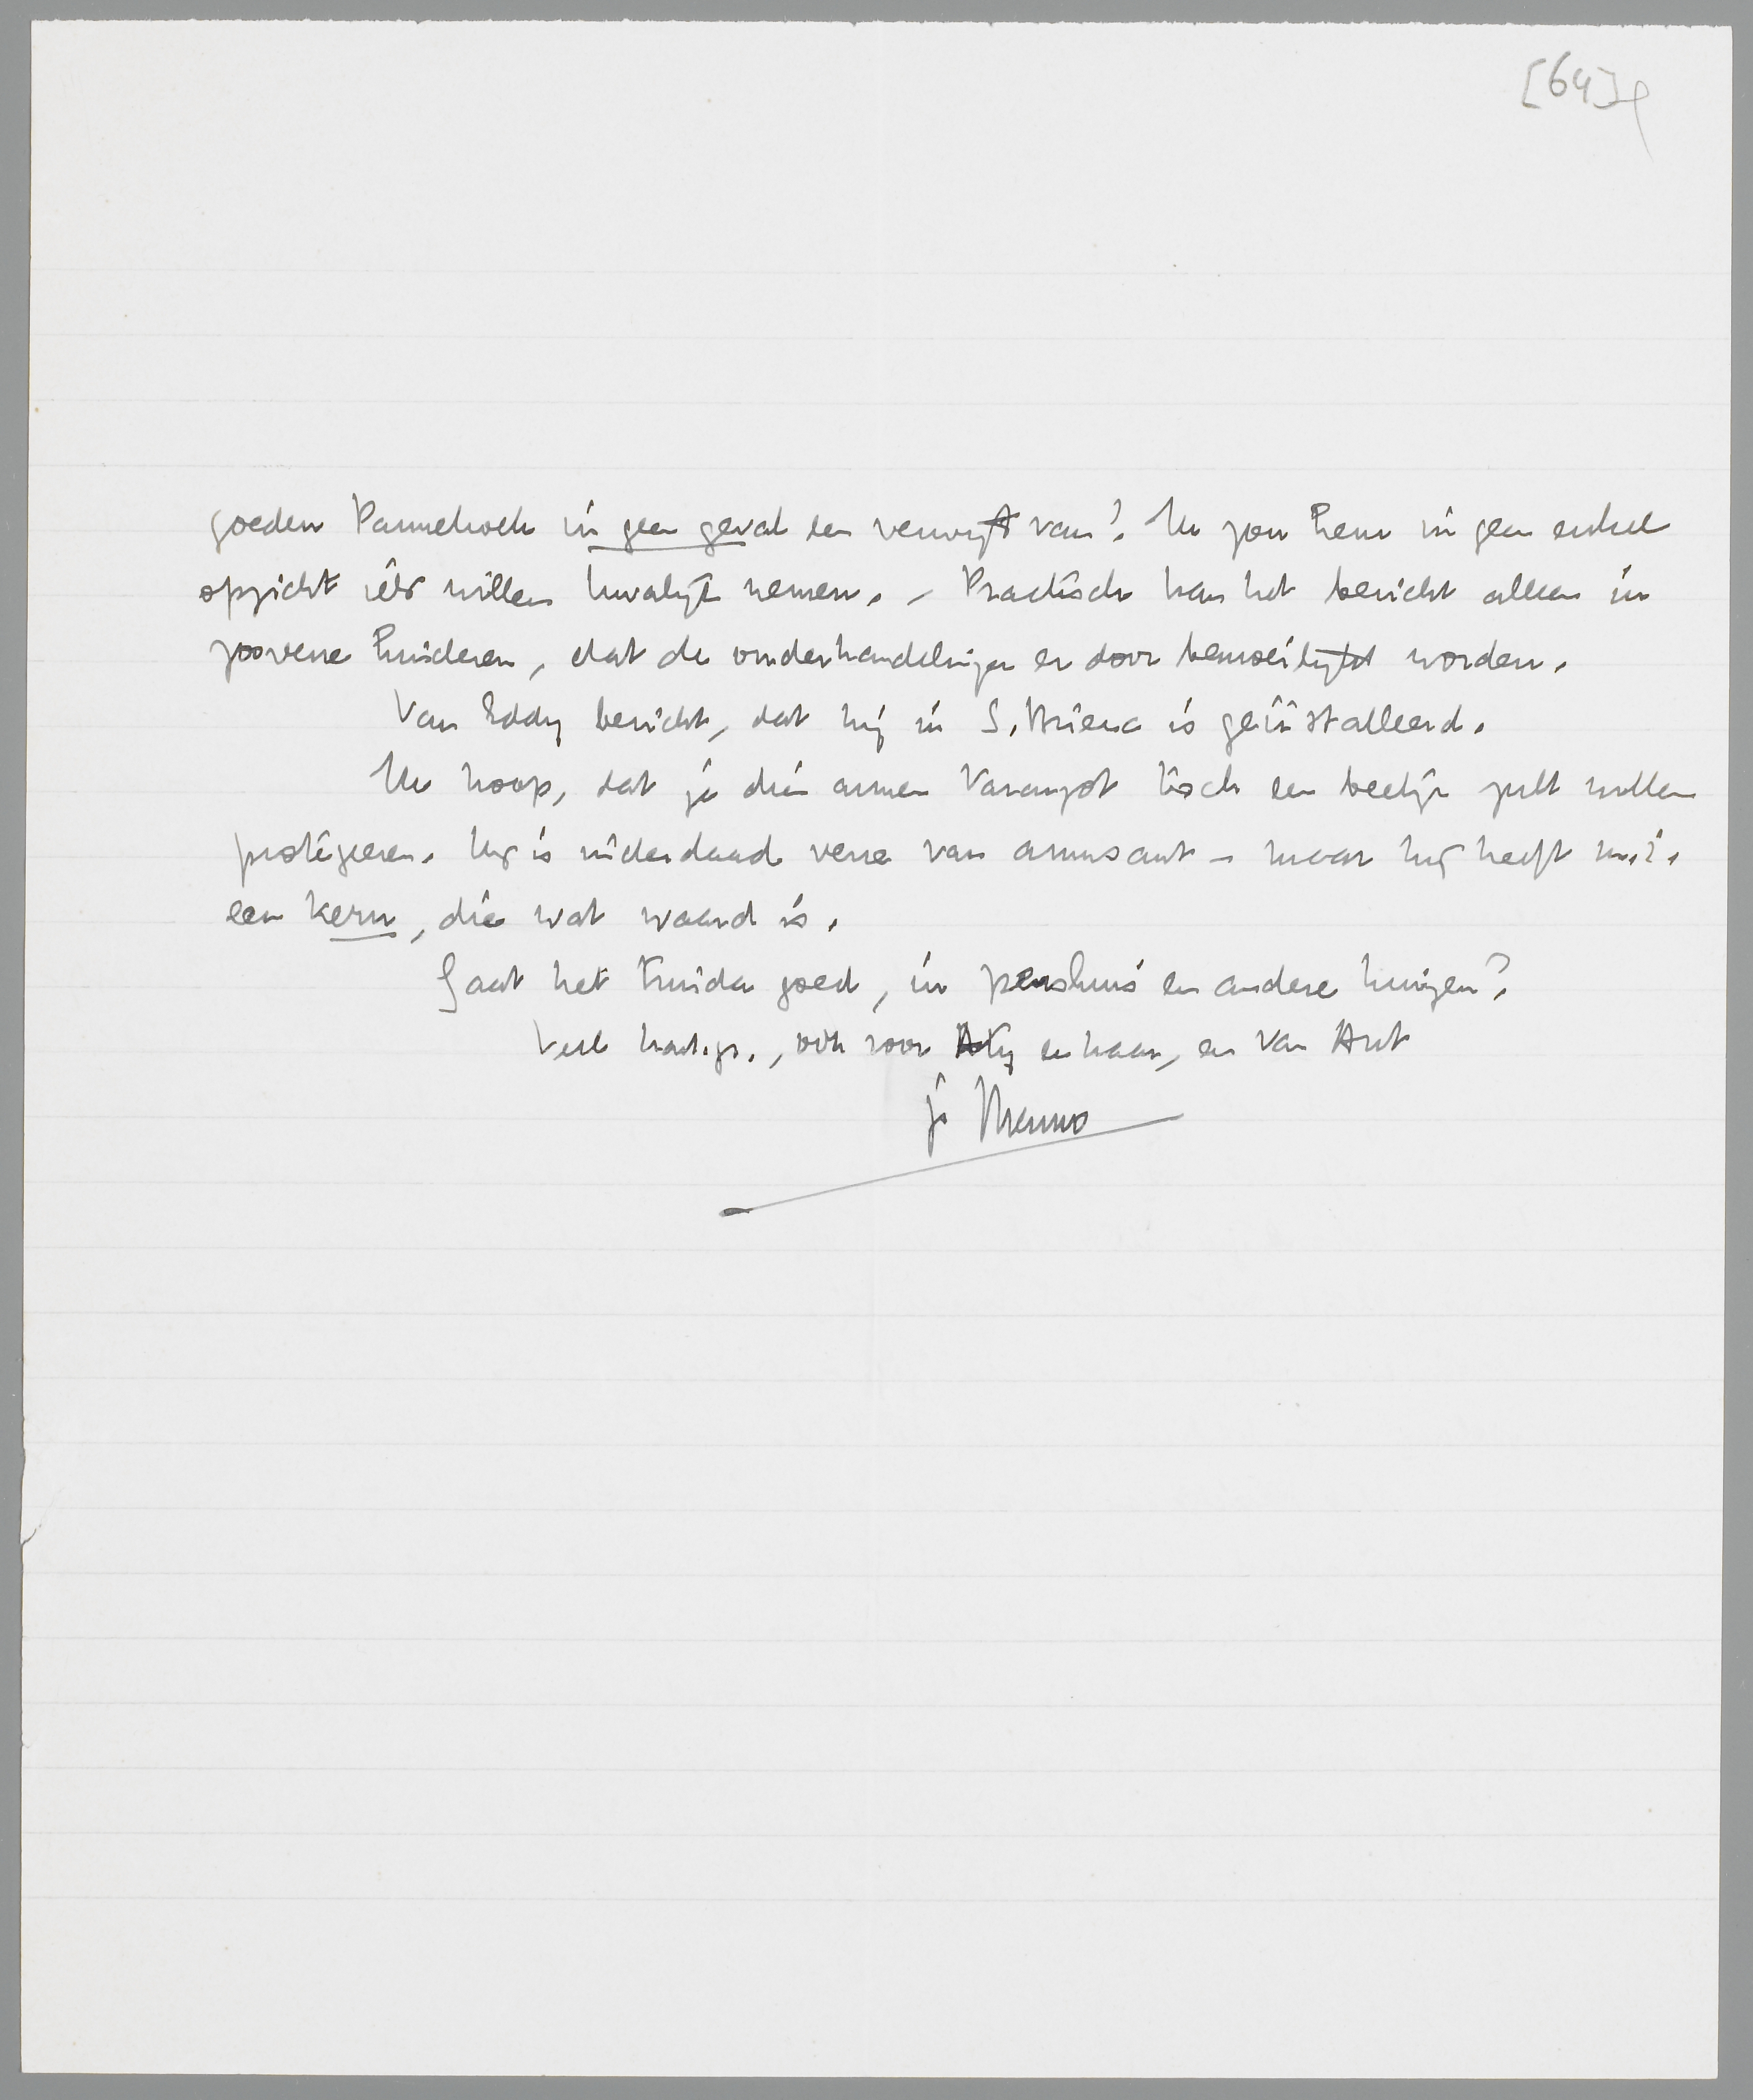 [64]
goeden Pannekoek in geen geval een verwijt van! Ik zou hem in geen enkel
opzicht iets willen kwalijk nemen. – Practisch kan het bericht alleen in
zooverre hinderen, dat de onderhandelingen er door bemoeilijkt worden.
Van Eddy bericht, dat hij in S. Brieuc is geïnstalleerd.
Ik hoop, dat je dien armen Varangot tòch een beetje zult willen
protégeeren. Hij is inderdaad verre van amusant – maar hij heeft m.i.
een kern, die wat waard is.
Gaat het Truida goed, in penshuis en andere dingen?
Veel hartgr., ook voor Atty en haar, en van Ant
je Menno